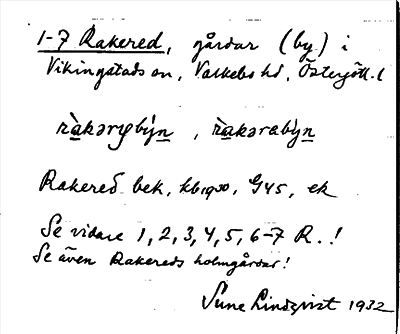 1-7 Rakered, gårdar (by) i
Vikingstads sn, Valkebo hd, Östergötl. l
Rakered bek, kb 1930, G45, ek
Se vidare 1, 2, 3, 4, 5, 6-7 R. !
Se även Rakereds holmgårdar!
Sune Lindqvist 1932